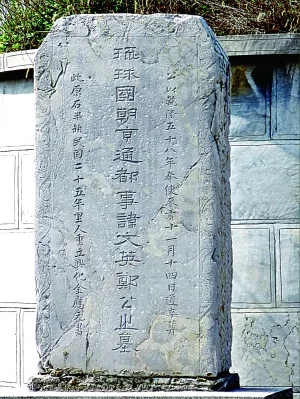 公以乾隆五十八年奉使來京十一月十四日道卒葬
琉球國朝京通都事諱文英鄭公之墓
此原石半蝕民國二十五年里人重立興化金應元書